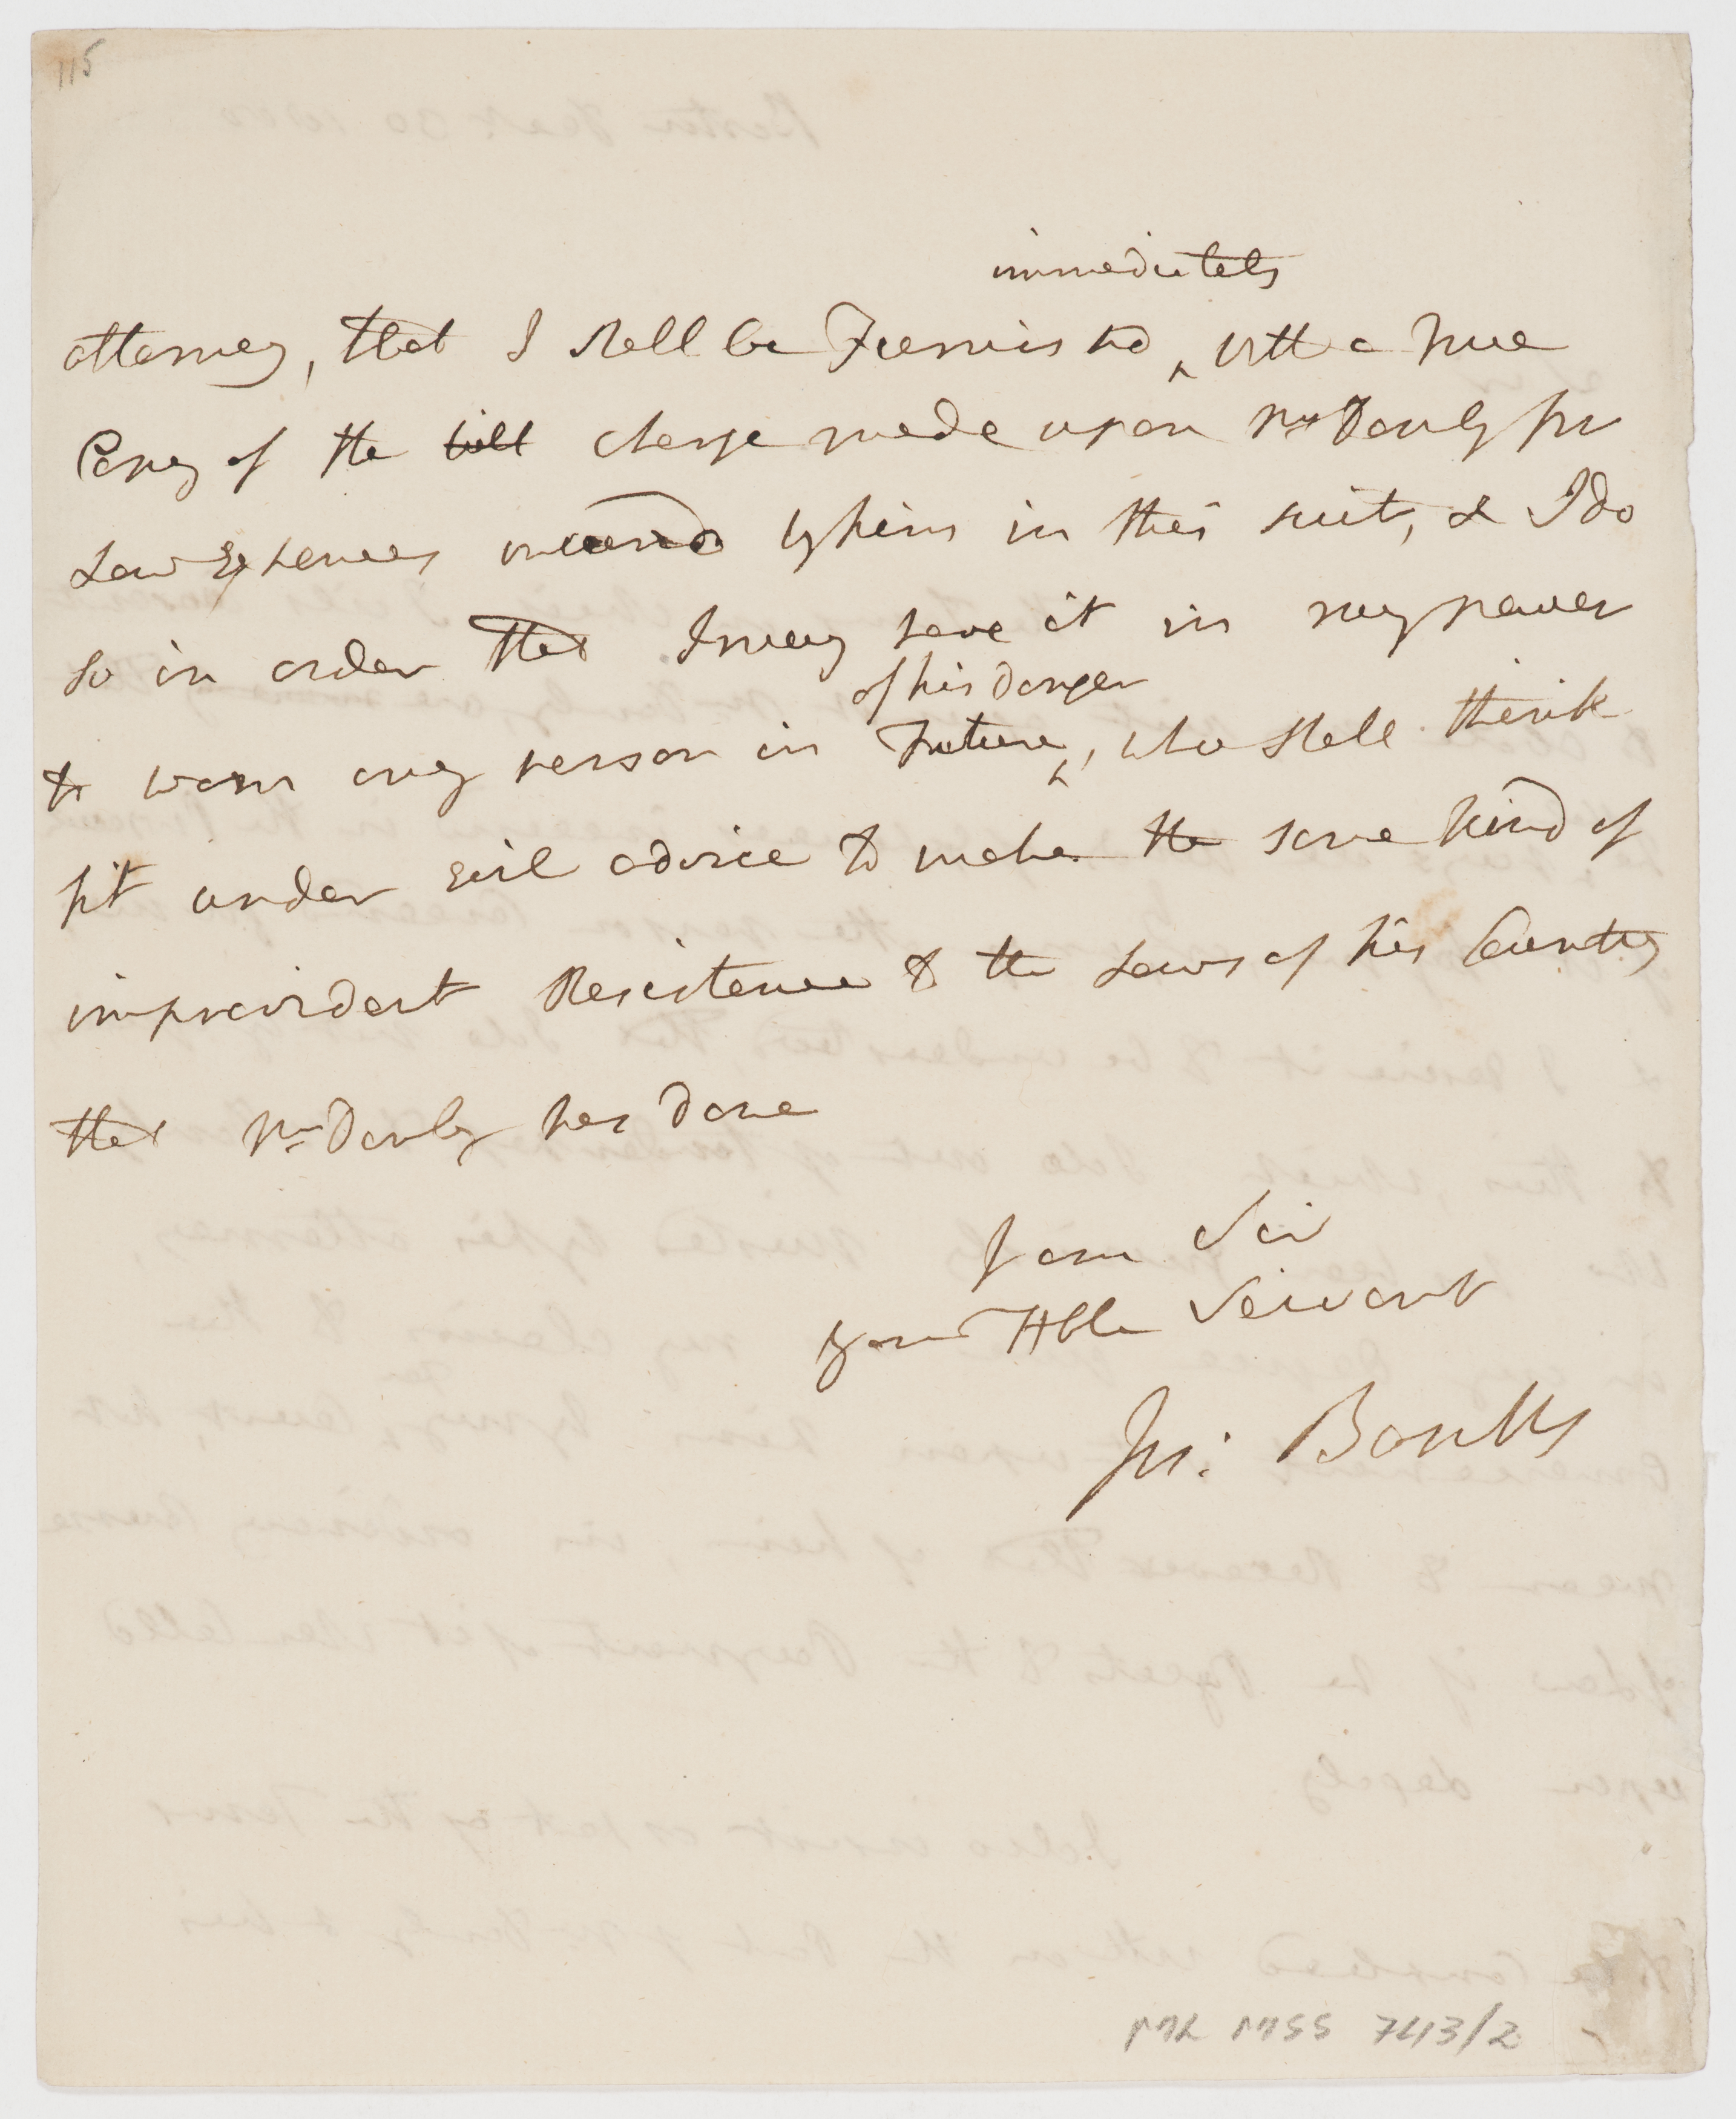 115
immediately
attorney, that I shall be Furnishd ^ with a true
Copy of the bill charge made upon Mr Danby for
Law Expences incurrd by him in this suit, & I do
so in order that I may have it in my power
of his danger
to warn any person in Future ^, who shall think
fit under evil advice to make the same kind of
improvident Resistence to the Laws of his Country
that Mr Danby has done
I am Sir
your Hble Servant
Jos: Banks
ML MSS 743/2